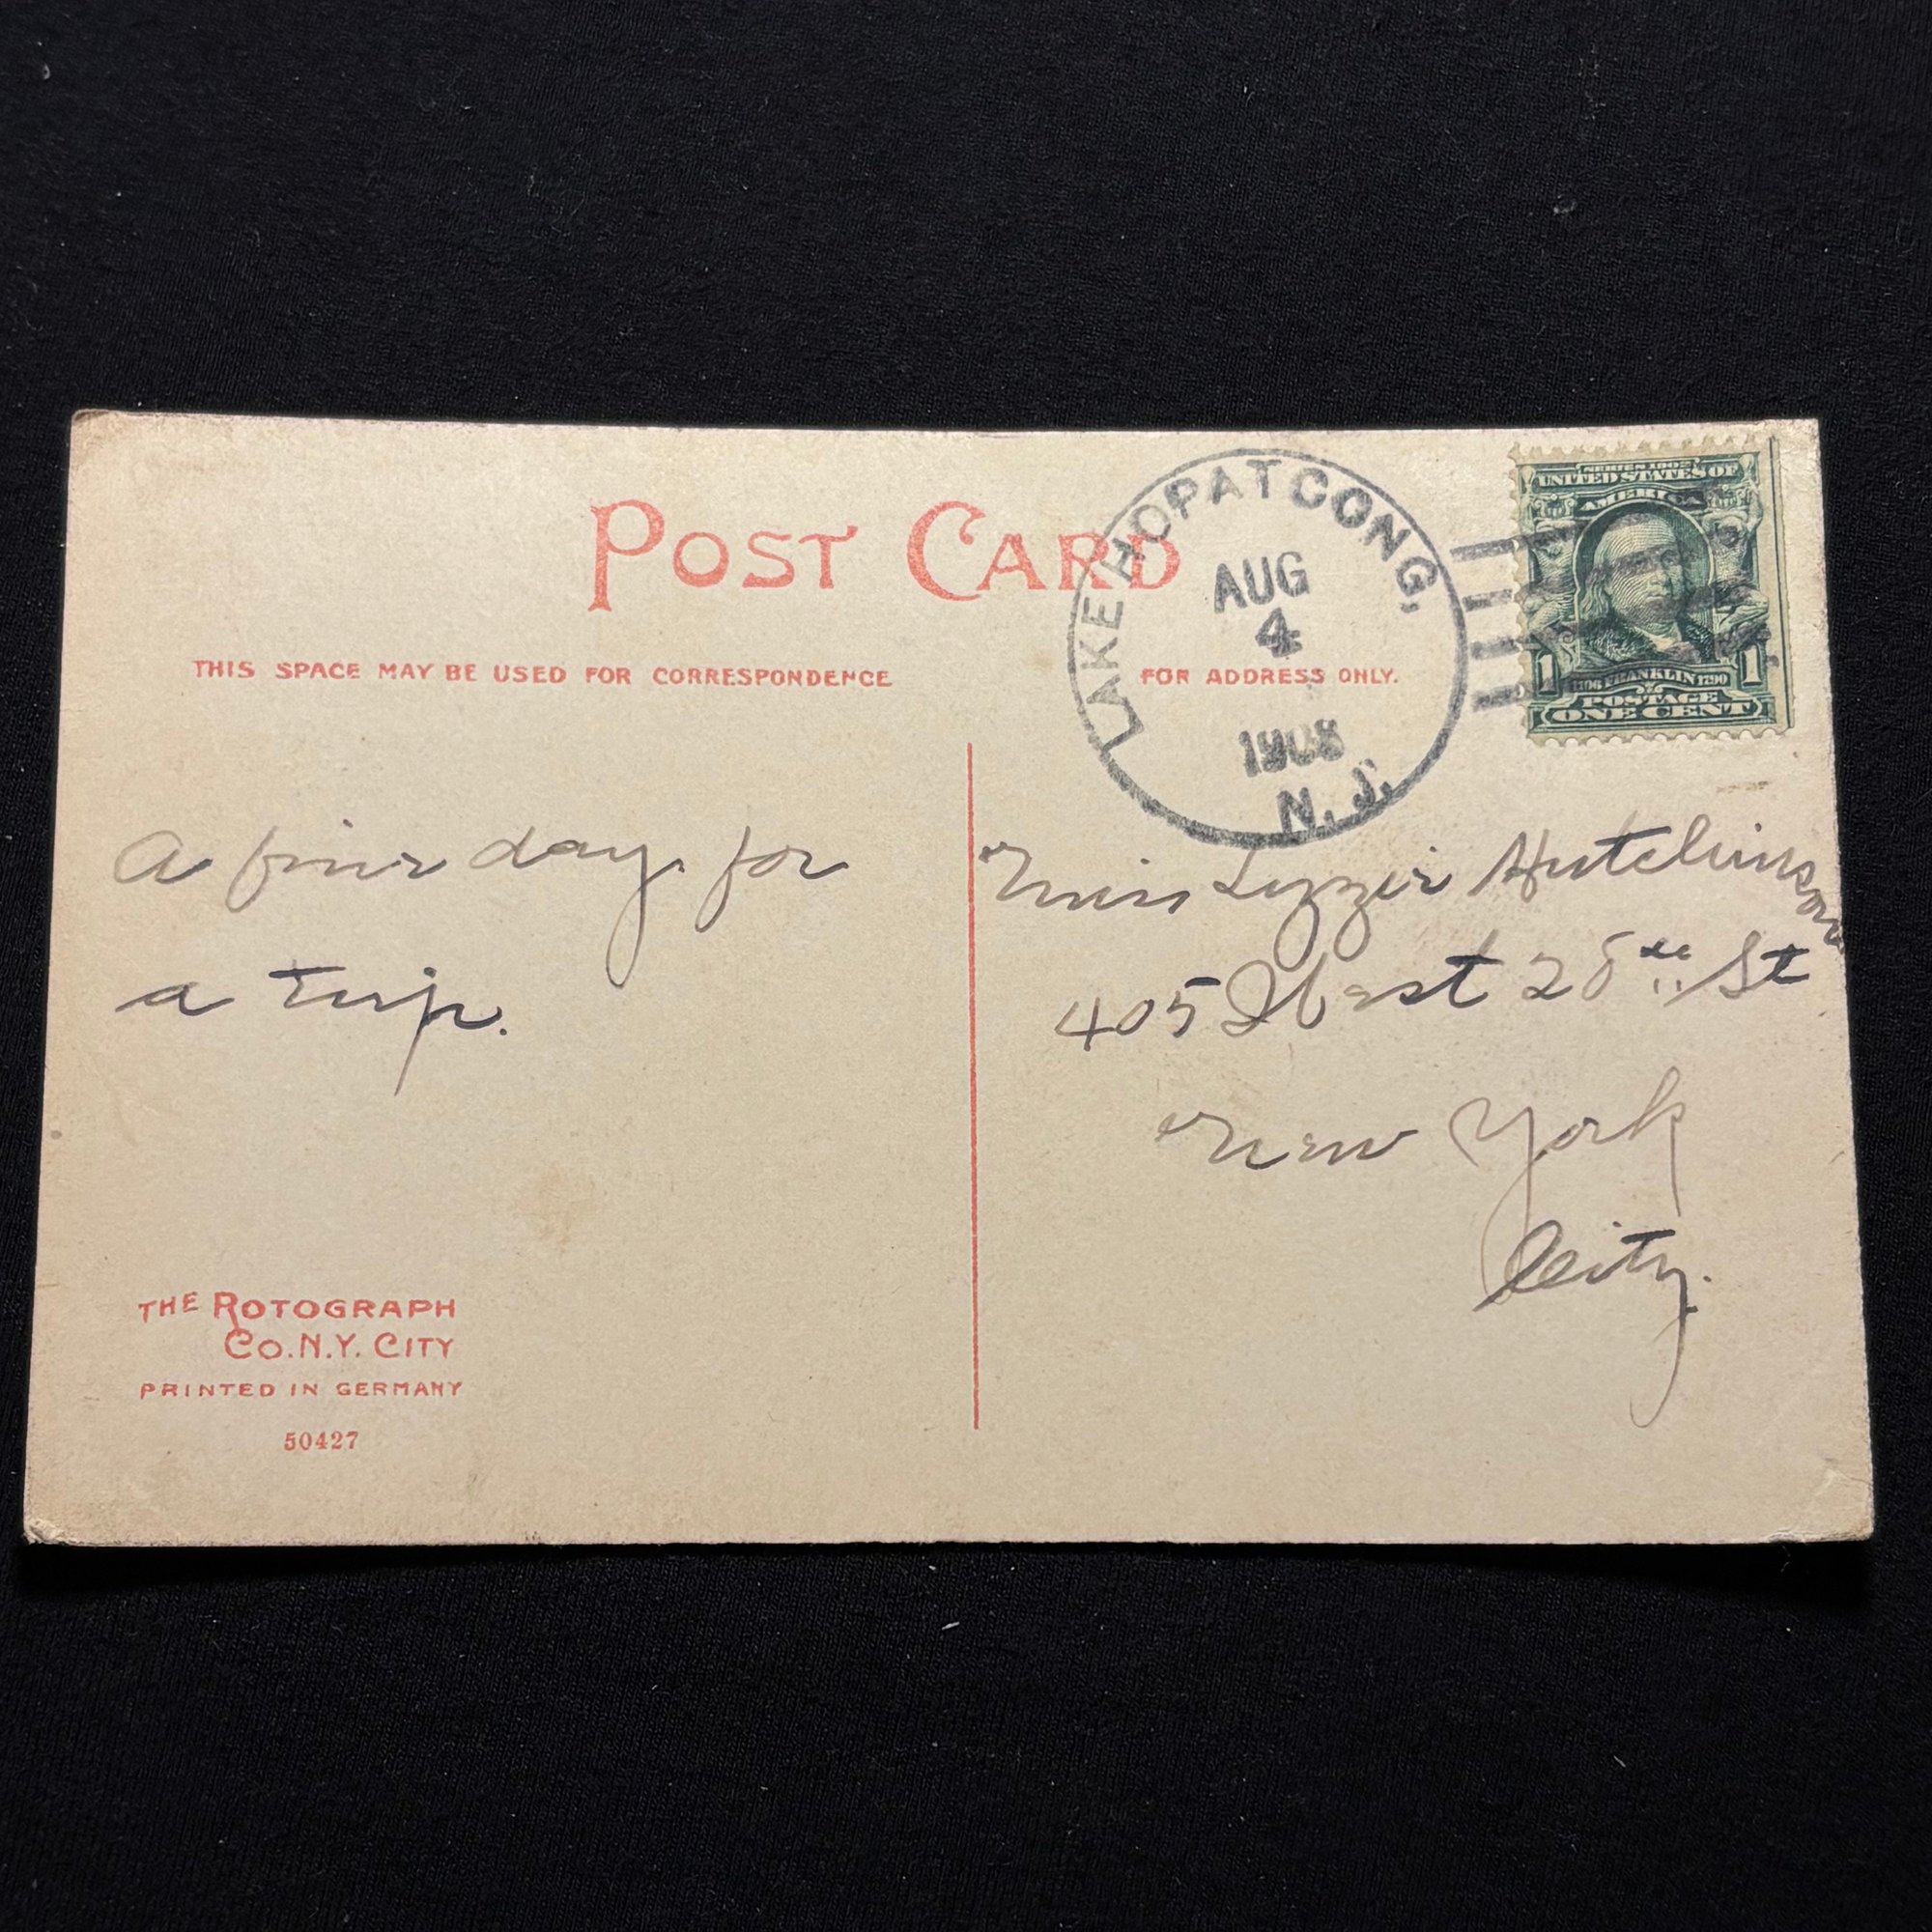 POST CARD
THIS SPACE MAY BE USED FOR CORRESPONDENCE
FOR ADDRESS ONLY.
LAKE HOPATCONG,
AUG
4
1908
N.J.
SERIES 1902
UNITED STATES OF
AMERICA
1 1706 FRANKLIN 1790 1
POSTAGE
ONE CENT
A fine day for
a trip.
Miss Lizzie Hutchinson
405 West 28th St
New York
City.
THE ROTOGRAPH
CO. N.Y. CITY
PRINTED IN GERMANY
50427